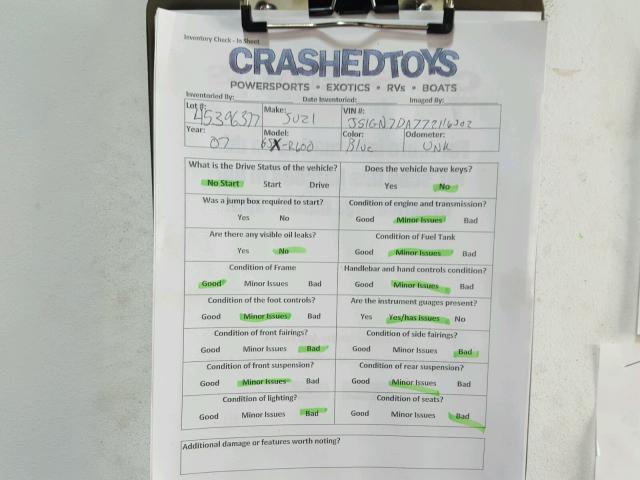 Inventory Check - In Sheet
CRASHEDTOYS
POWERSPORTS • EXOTICS • RVs • BOATS
Inventoried By: Date Inventoried: Imaged By:
Lot #: 45396377 Make: SUZI VIN #: JS1GN7DA772116302
Year: 07 Model: GSX-R600 Color: Blue Odometer: UNK
What is the Drive Status of the vehicle? Does the vehicle have keys?
No Start Start Drive Yes No
Was a jump box required to start? Condition of engine and transmission?
Yes No Good Minor Issues Bad
Are there any visible oil leaks? Condition of Fuel Tank
Yes No Good Minor Issues Bad
Condition of Frame Handlebar and hand controls condition?
Good Minor Issues Bad Good Minor Issues Bad
Condition of the foot controls? Are the instrument guages present?
Good Minor Issues Bad Yes Yes/has issues No
Condition of front fairings? Condition of side fairings?
Good Minor Issues Bad Good Minor Issues Bad
Condition of front suspension? Condition of rear suspension?
Good Minor Issues Bad Good Minor Issues Bad
Condition of lighting? Condition of seats?
Good Minor Issues Bad Good Minor Issues Bad
Additional damage or features worth noting?